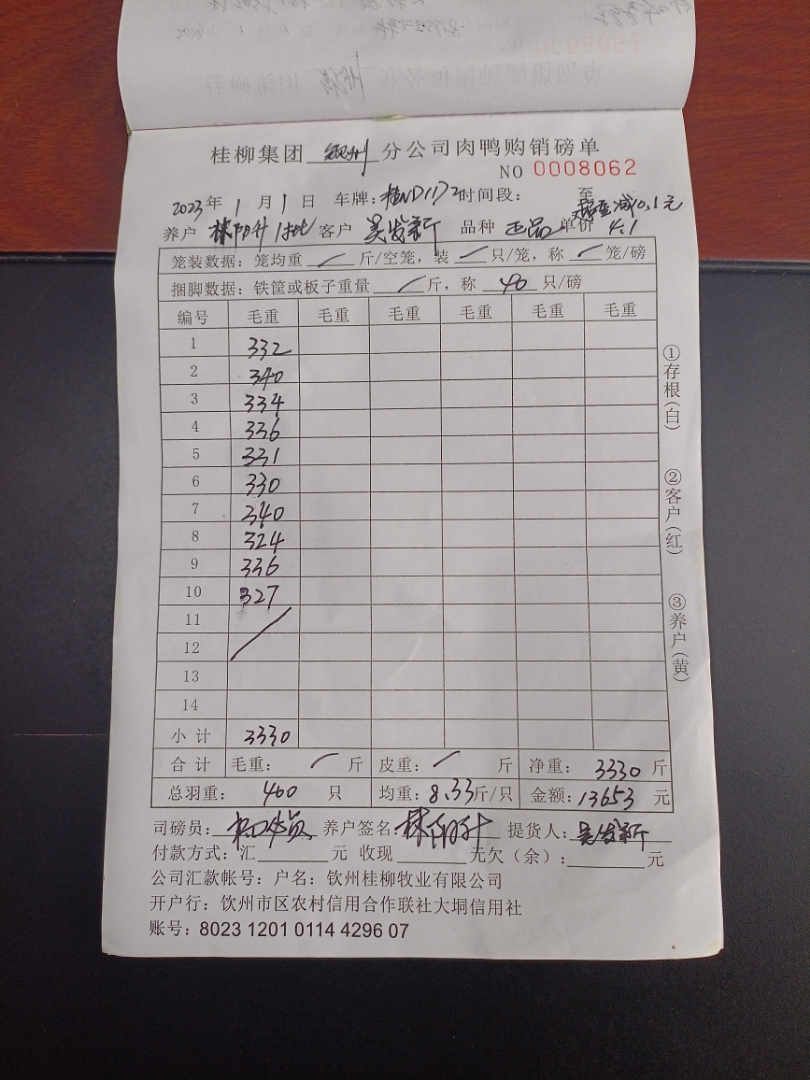 桂柳集团 钦州 分公司肉鸭购销磅单
NO 0008062
2023年 1月 1日 车牌：桂ND1172 时间段： 至
减0.1元
养户 林阴升 1批 客户 吴发新 品种 正品 单价 4.1
笼装数据：笼均重 / 斤/空笼，装 / 只/笼，称 / 笼/磅
捆脚数据：铁筐或板子重量 / 斤，称 40 只/磅
编号 毛重 毛重 毛重 毛重 毛重 毛重
1 332
2 340
3 334
4 336
5 331
6 330
7 340
8 324
9 336
10 327
11
12
13
14
小计 3330
合计 毛重： / 斤 皮重： / 斤 净重： 3330 斤
总羽重： 400 只 均重：8.33斤/只 金额：13653 元
司磅员： 养户签名： 提货人：吴发新
付款方式：汇 元 收现 无欠（余）： 元
公司汇款帐号：户名：钦州桂柳牧业有限公司
开户行：钦州市区农村信用合作联社大垌信用社
账号：8023 1201 0114 4296 07
①存根(白)
②客户(红)
③养户(黄)